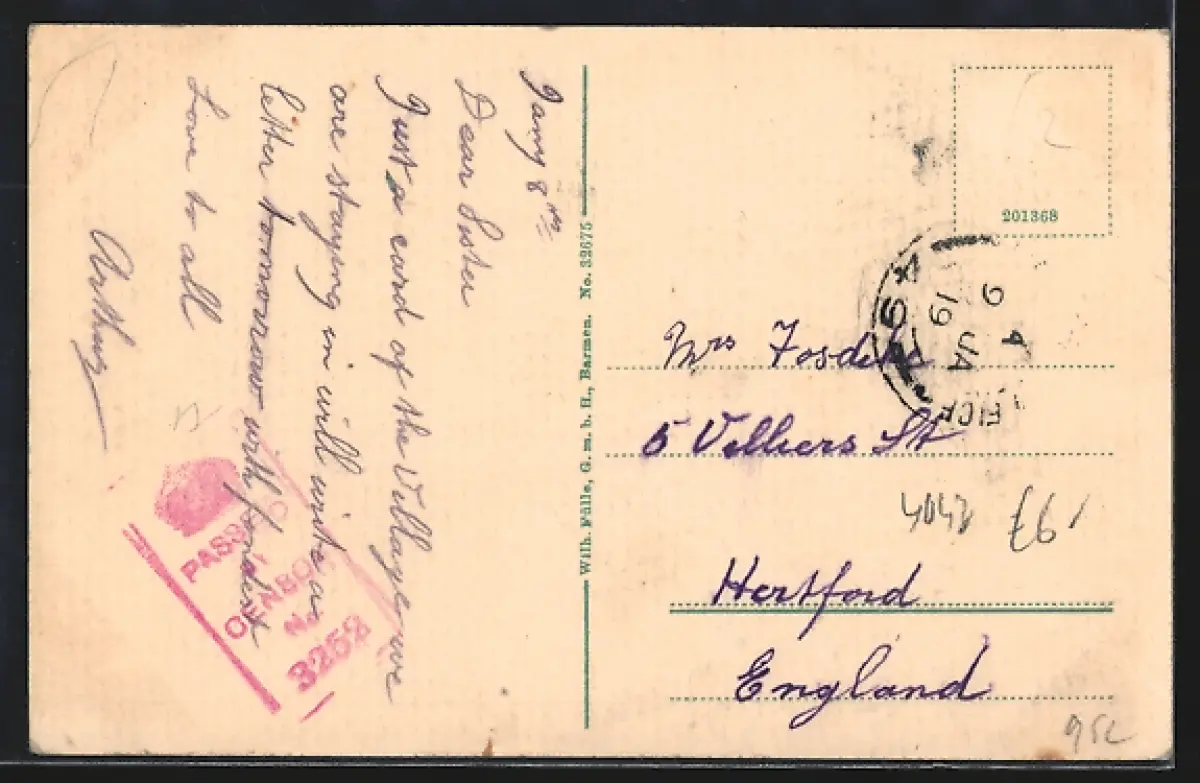 Jany 8th
Dear Sister
Just a card of the Village we
are staying in will write a
letter tomorrow with fondest
Love to all
Arthur
PASSED
CENSOR
No.
3252
Wilh. Fülle, G. m. b. H., Barmen. No. 32675
201368
9 JA
19
Mrs Fosdike
5 Villiers St
Hertford
England
97
952